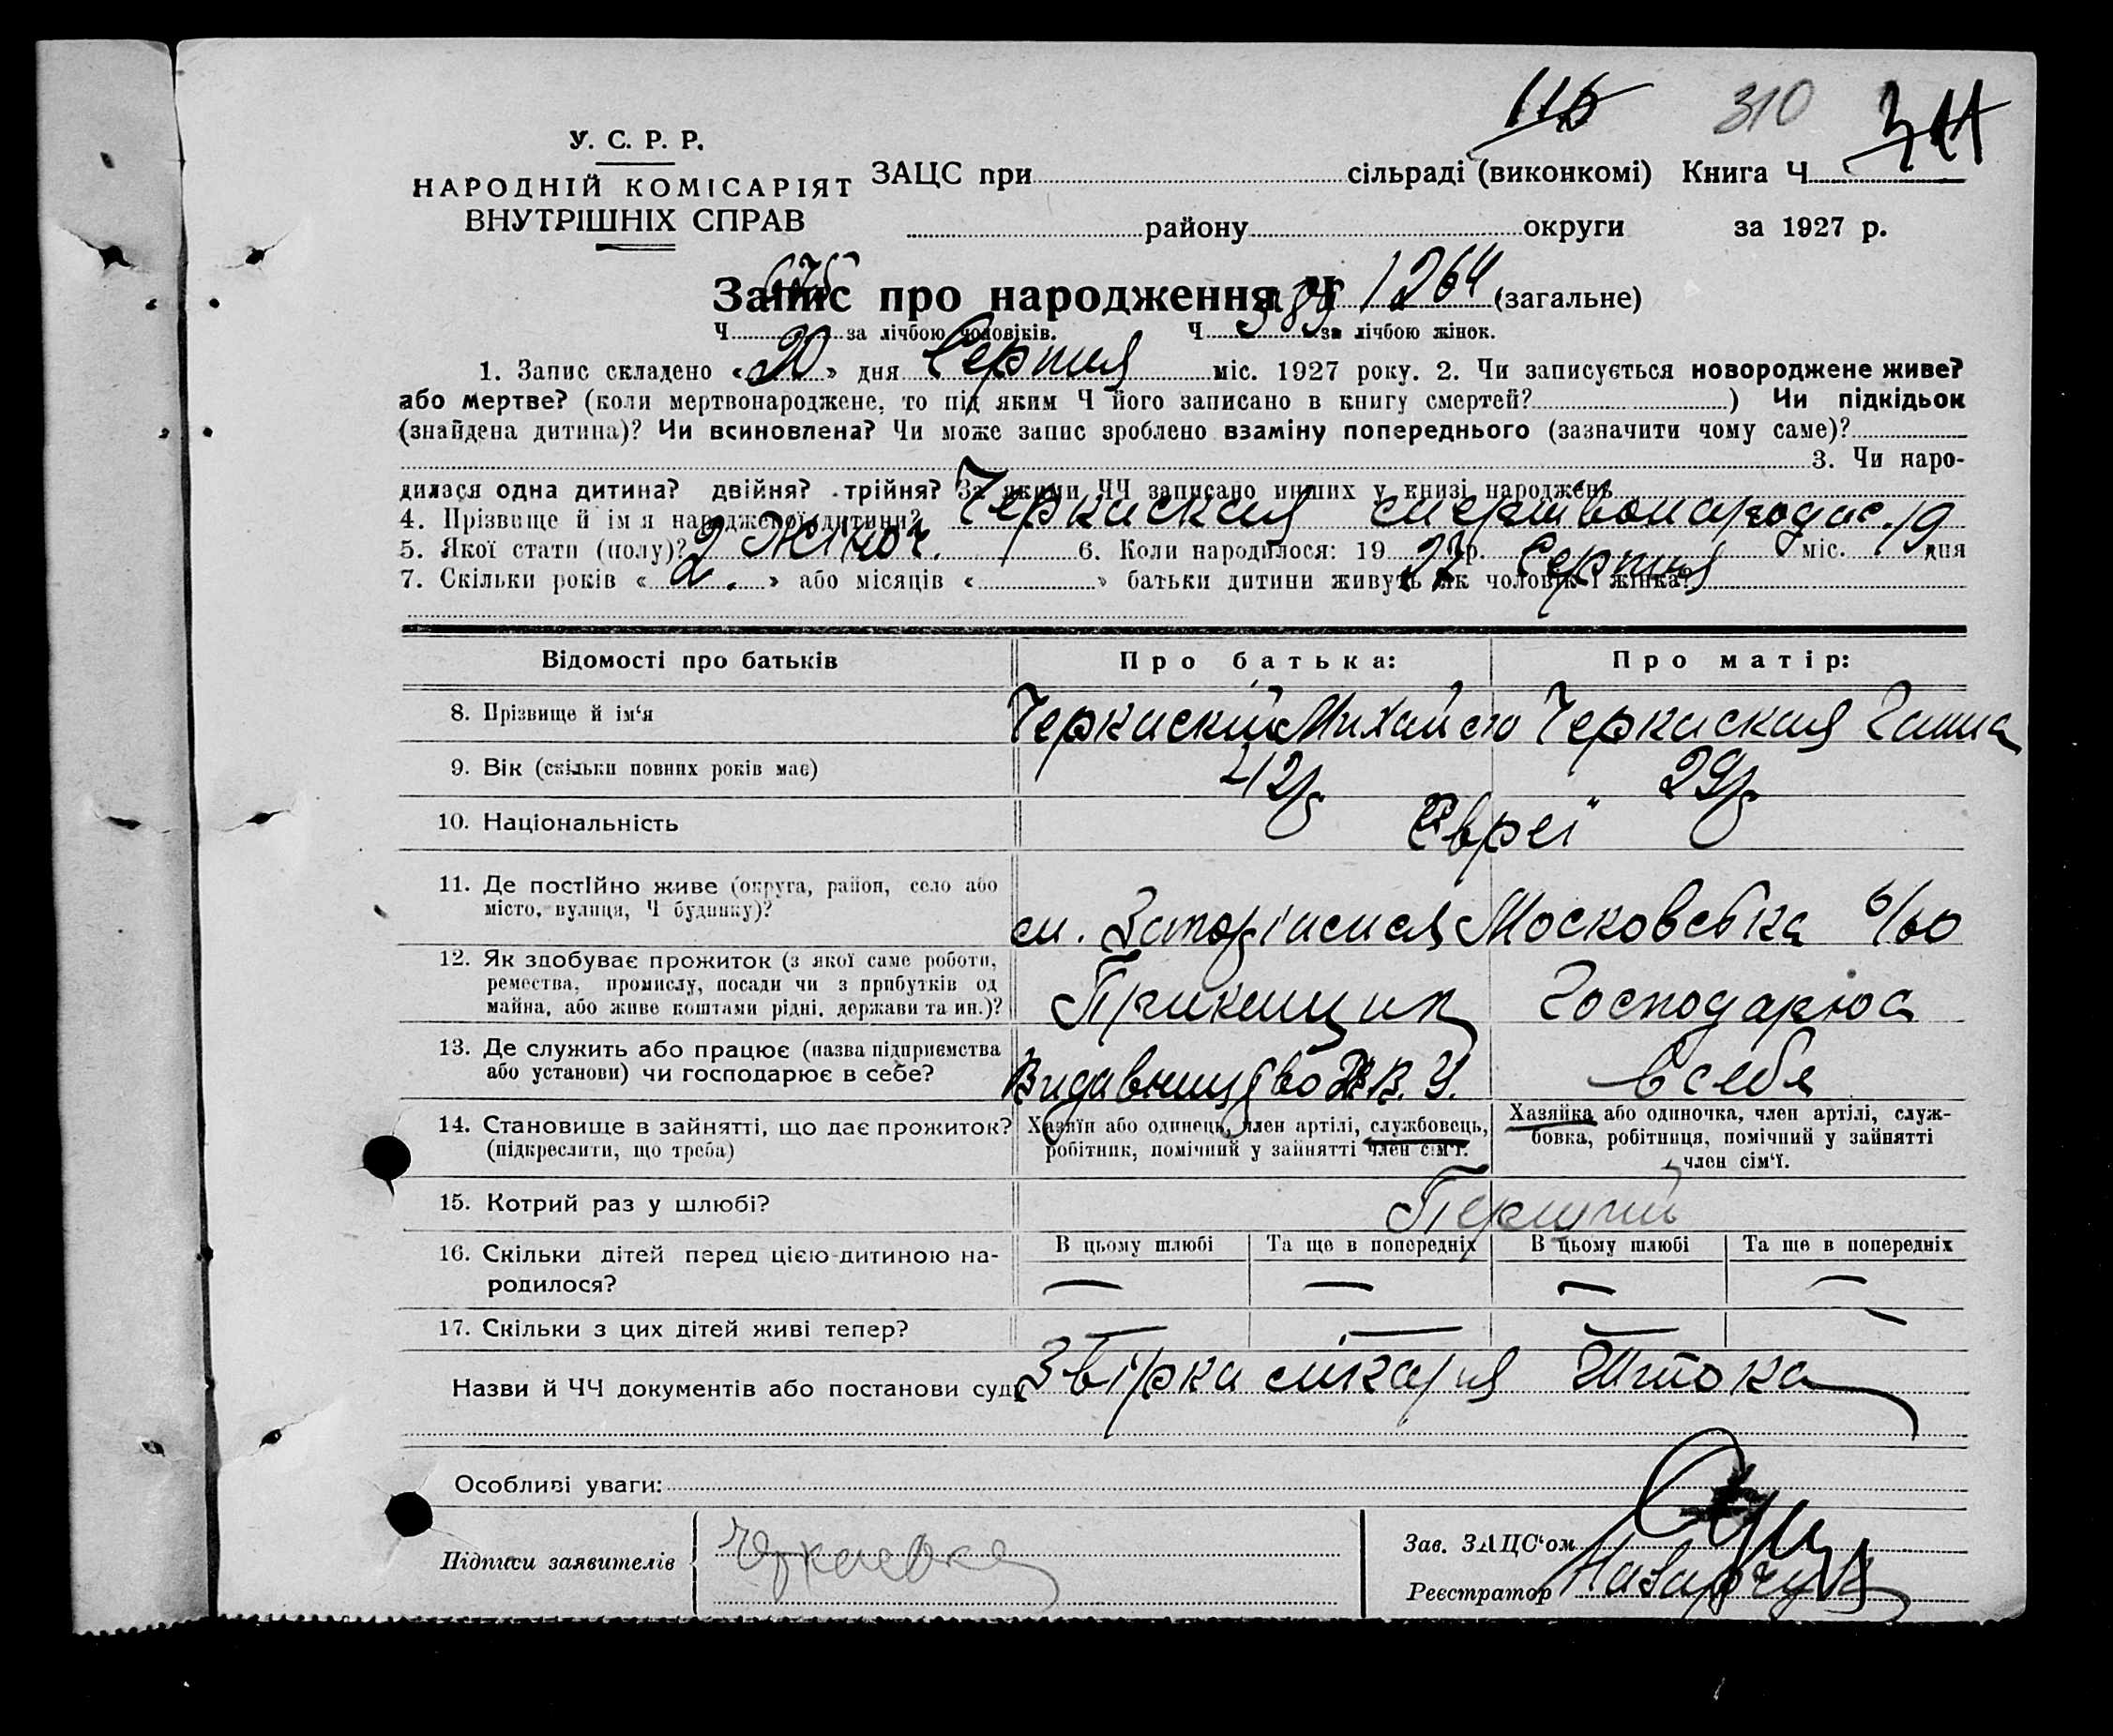 116 310 311
У. С. Р. Р.
НАРОДНІЙ КОМІСАРІЯТ
ВНУТРІШНІХ СПРАВ
ЗАЦС при сільраді (виконкомі) Книга Ч
району округи за 1927 р.
675
Запис про народження Ч 1264 (загальне)
Ч за лічбою чоловіків. Ч 589 за лічбою жінок.
1. Запис складено «20» дня Серпня міс. 1927 року. 2. Чи записується новороджене живе?
або мертве? (коли мертвонароджене, то під яким Ч його записано в книгу смертей? ) Чи підкідьок
(знайдена дитина)? Чи всиновлена? Чи може запис зроблено взаміну попереднього (зазначити чому саме)?
3. Чи наро-
дилася одна дитина? двійня? трійня? За якими ЧЧ записано инших у книзі народжень
4. Прізвище й ім'я народженої дитини? Черкаская мертвонарод.
5. Якої статі (полу)? 2 жіноч. 6. Коли народилося: 19 27 р. Серпня міс. 19 дня
7. Скільки років «2.» або місяців « » батьки дитини живуть як чоловік і жінка?
Відомості про батьків Про батька: Про матір:
8. Прізвище й ім‘я Черкаский Михайло Черкаская Ганна
9. Вік (скільки повних років має) 42 р 29 р
10. Національність Євреї
11. Де постійно живе (округа, район, село або
місто, вулиця, Ч будинку)? м. Запоріжжя Московська 6/60
12. Як здобуває прожиток (з якої саме роботи,
ремества, промислу, посади чи з прибутків од
майна, або живе коштами рідні, держави та ин.)? Прикащик Господарює
13. Де служить або працює (назва підприємства
або установи) чи господарює в себе? Видавництво В. У. в себе
14. Становище в зайнятті, що дає прожиток?
(підкреслити, що треба)
Хазяїн або одинець, член артілі, службовець,
робітник, помічний у зайнятті член сім‘ї.
Хазяйка або одиночка, член артілі, служ-
бовка, робітниця, помічний у зайнятті
член сім‘ї.
15. Котрий раз у шлюбі? Перший
16. Скільки дітей перед цією дитиною на-
родилося?
В цьому шлюбі Та ще в попередніх В цьому шлюбі Та ще в попередніх
— — — —
17. Скільки з цих дітей живі тепер? — — — —
Назви й ЧЧ документів або постанови суд. Звірка лікаря Штока
Особливі уваги:
Підписи заявителів
Зав. ЗАЦС‘ом
Реєстратор Назарчук